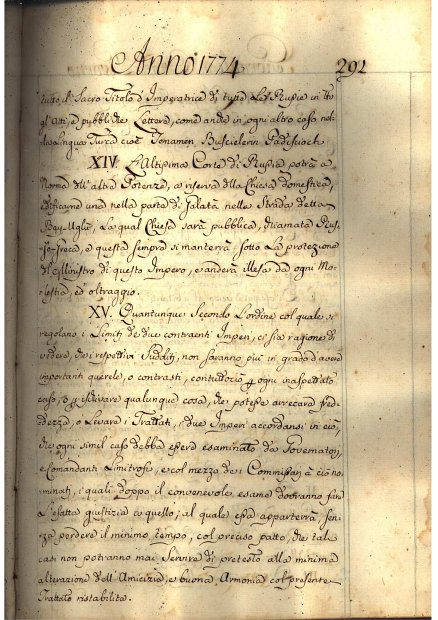 Anno 1774 292
tutto il Sacro Titolo d'Imperatrice di tutte Le Russie in tti
gl'Atti, e pubbliche Lettere, come anche in ogni altro caso nel-
la Lingua Turca cioè Temamen Russielerin Padischoch
XIV. L'Altissima Corte di Russia potrà a
Norma dell'altre Potenze, a riserva della Chiesa domestica,
edificarne una nella parte di Galata nella Strada detta
Bey-Uglù, La qual Chiesa sarà pubblica, chiamata Rus-
so-Greca, e questa sempre si manterrà sotto La protezione
del Ministro di questo Impero, e anderà illesa da ogni Mo-
lestia, ed oltraggio.
XV. Quantunque Secondo L'ordine col quale si
regolano i Limiti de due contraenti Imperi, ci sia ragione di
credere, che i respettivi Sudditi, non saranno più in grado d'avere
importanti querele, o contrasti, contuttociò p ogni inaspettato
caso, o p ischivare qualunque cosa, che potesse arrecare fred-
dezza, o Levare i Trattati, i due Imperi accordansi in ciò,
che ogni simil caso debba essere esaminato da Governatori,
e Comandanti Limitrofi, e col mezzo de Commissarj a ciò no-
minati, i quali doppo il convenevole esame dovranno fare
L'esatta giustizia a quello, al quale essa apparterrà, sen-
za perdere il minimo tempo, col preciso patto, che tali
casi non potranno mai Servire di pretesto alla minima
alterazione dell'Amicizia, e buona Armonia col presente
Trattato ristabilita.